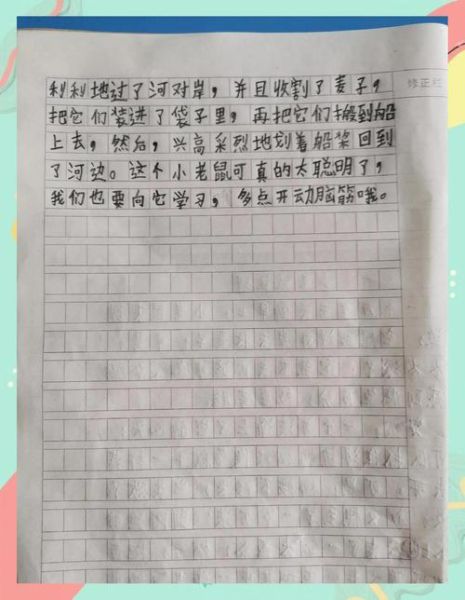 利利地过了河对岸，并且收割了麦子，
把它们装进了袋子里，再把它们搬到船
上去，然后，兴高采烈地划着船桨回到
了河边。这个小老鼠可真的太聪明了，
我们也要向它学习，多点开动脑筋哦。
修正栏